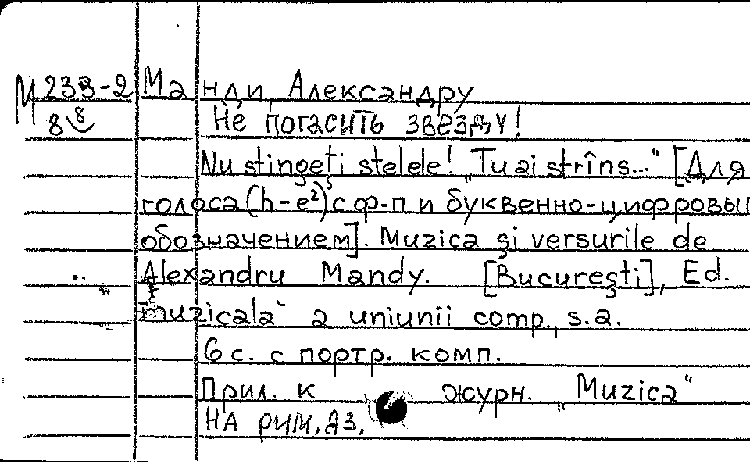 М 233-2 Манди, Александру
88 Не погасить звезду!
Nu stingeţi stelele! „Tu ai strîns..." [Для
голоса (h-e²) с ф-п и буквенно-цифровым
обозначением]. Muzica şi versurile de
Alexandru Mandy. [Bucureşti], Ed.
muzicală a uniunii comp., s.a.
6 с. с портр. комп.
Прил. к журн. „Muzica"
НА РУМ. ЯЗ.